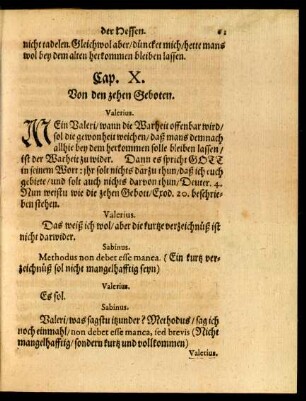 der Hessen. 61
nicht tadelen. Gleichwol aber/düncket mich/hette mans
wol bey dem alten herkommen bleiben lassen.
Cap. X.
Von den zehen Geboten.
Valerius.
MEin Valeri/wann die Warheit offenbar wird/
sol die gewonheit weichen/daß mans demnach
allhie bey dem herkommen solle bleiben lassen/
ist der Warheit zu wider. Dann es spricht GOTT
in seinem Wort: jhr solt nichts darzu thun/daß ich euch
gebiete/und solt auch nichts darvon thun/Deuter. 4.
Nun weistu wie die zehen Gebott/Exod. 20. beschrie-
ben stehen.
Valerius.
Das weiß ich wol/aber die kurtze verzeichnüß ist
nicht darwider.
Sabinus.
Methodus non debet esse manca. (Ein kurtz ver-
zeichnüß sol nicht mangelhafftig seyn)
Valerius.
Es sol.
Sabinus.
Valeri/was sagstu itzunder? Methodus/sag ich
noch einmahl/non debet esse manca, sed brevis (Nicht
mangelhafftig/sondern kurtz und vollkommen)
Valerius.